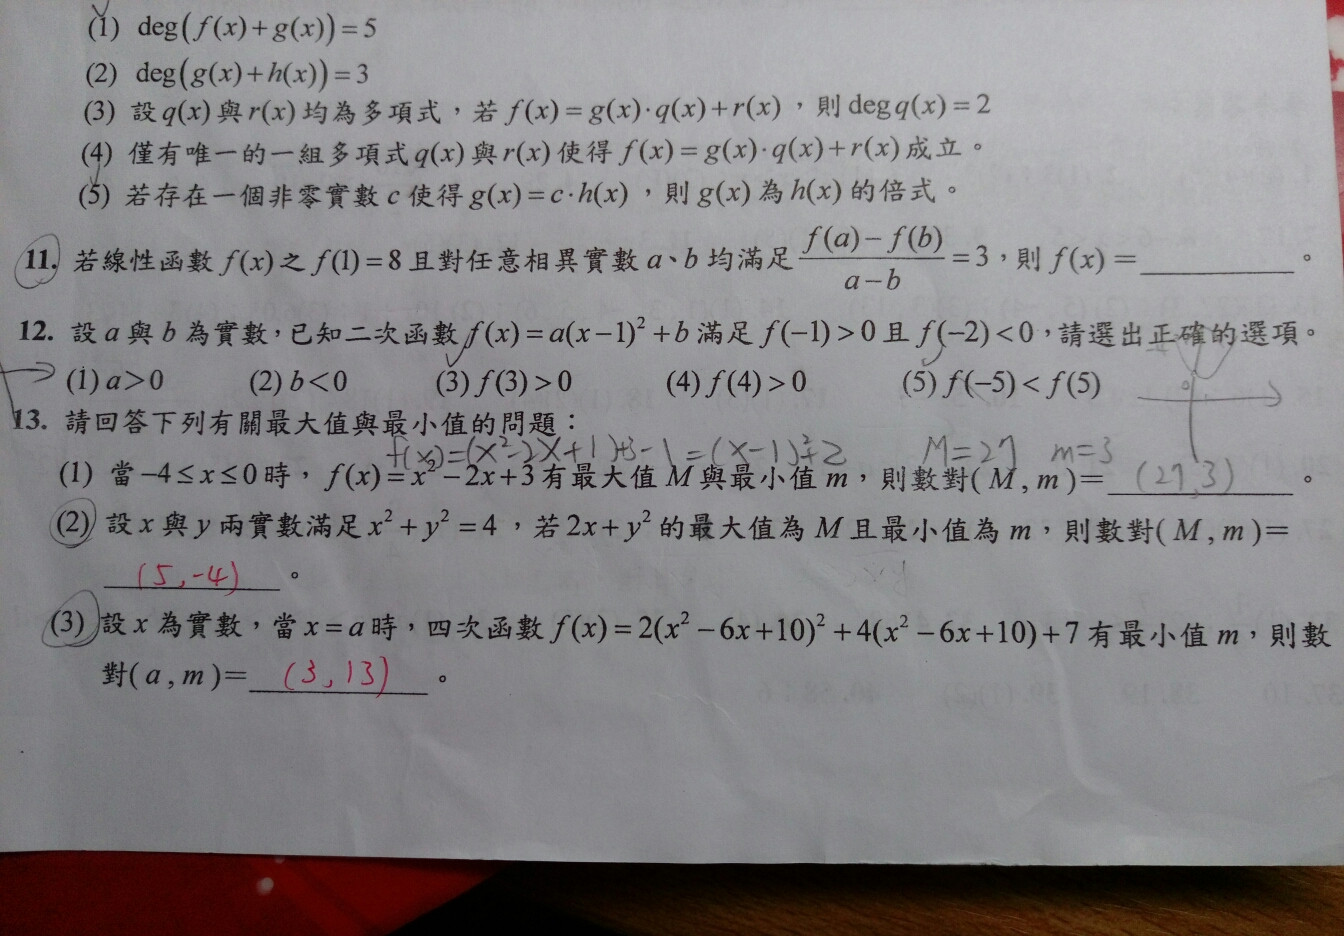 (1) deg(f(x)+g(x))=5
(2) deg(g(x)+h(x))=3
(3) 設q(x)與r(x)均為多項式，若f(x)=g(x)·q(x)+r(x)，則deg q(x)=2
(4) 僅有唯一的一組多項式q(x)與r(x)使得f(x)=g(x)·q(x)+r(x)成立。
(5) 若存在一個非零實數c使得g(x)=c·h(x)，則g(x)為h(x)的倍式。
11. 若線性函數f(x)之f(1)=8且對任意相異實數a、b均滿足 (f(a)−f(b))/(a−b) =3，則f(x)=________。
12. 設a與b為實數，已知二次函數f(x)=a(x−1)²+b滿足f(−1)>0且f(−2)<0，請選出正確的選項。
(1) a>0 (2) b<0 (3) f(3)>0 (4) f(4)>0 (5) f(−5)<f(5)
13. 請回答下列有關最大值與最小值的問題：
f(x)=(x²-2x+1)+3-1=(x-1)²+2 M=27 m=3
(1) 當−4≤x≤0時，f(x)=x²−2x+3有最大值M與最小值m，則數對(M,m)= (27,3) 。
(2) 設x與y兩實數滿足x²+y²=4，若2x+y²的最大值為M且最小值為m，則數對(M,m)=
(5,-4) 。
(3) 設x為實數，當x=a時，四次函數f(x)=2(x²−6x+10)²+4(x²−6x+10)+7有最小值m，則數
對(a,m)= (3,13) 。